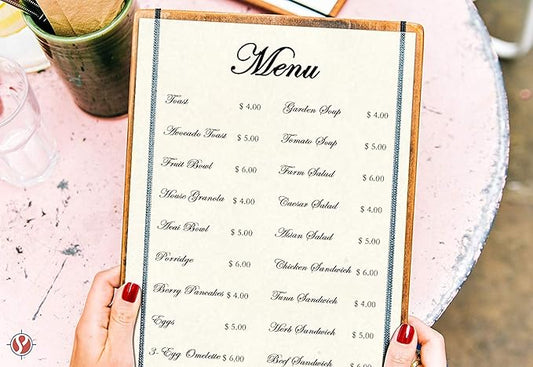 Menu
Toast $ 4.00
Avocado Toast $ 5.00
Fruit Bowl $ 6.00
House Granola $ 4.00
Acai Bowl $ 5.00
Porridge $ 6.00
Berry Pancakes $ 4.00
Eggs $ 5.00
3- Egg Omelette $ 6.00
Garden Soup $ 4.00
Tomato Soup $ 5.00
Farm Salad $ 6.00
Caesar Salad $ 4.00
Asian Salad $ 5.00
Chicken Sandwich $ 6.00
Tuna Sandwich $ 4.00
Herb Sandwich $ 5.00
Beef Sandwich $ 6.00